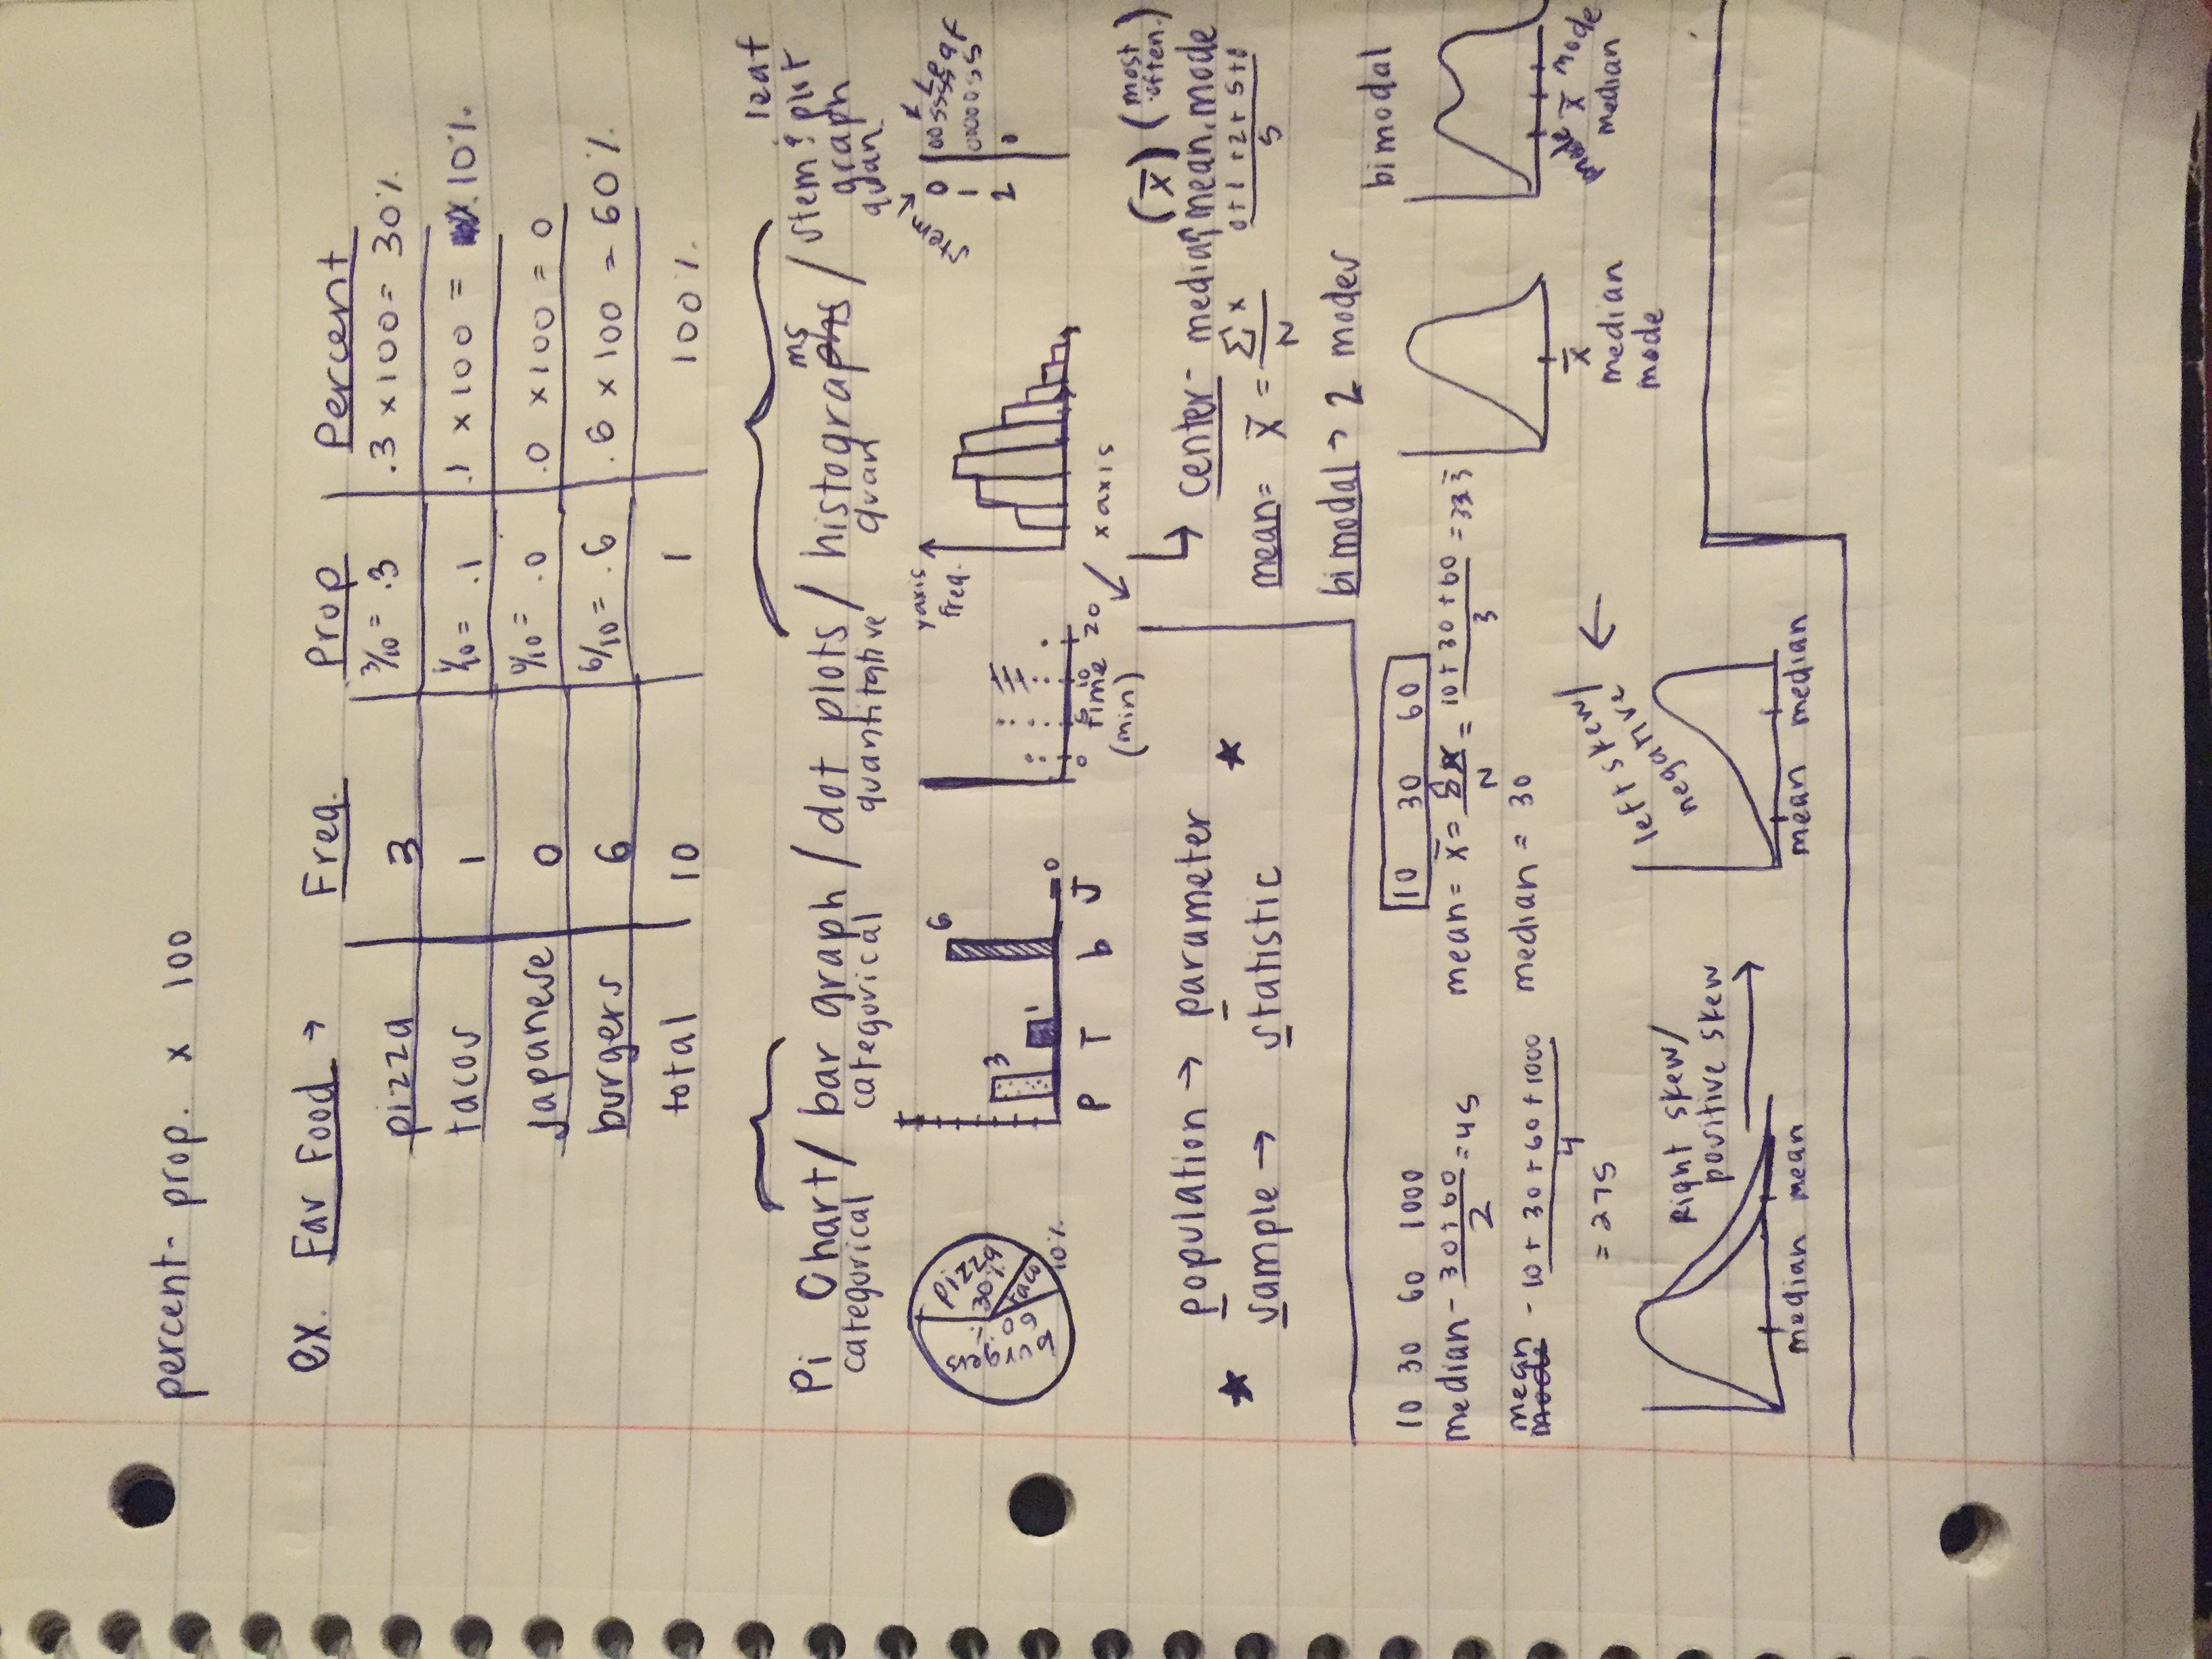 percent - prop. x 100
ex. Fav Food → Freq. Prop Percent
pizza 3 3/10 = .3 .3 x 100 = 30%
tacos 1 1/10 = .1 .1 x 100 = 10%
Japanese 0 0/10 = .0 .0 x 100 = 0
burgers 6 6/10 = .6 .6 x 100 = 60%
total 10 1 100%
leaf
Pi Chart / bar graph / dot plots / histograms / stem & plot
graph
categorical categorical quantitative quan quan
Pizza
30%
Taco
10%
burgers
60%
3 1 6 0
P T b J
0 5 10 20
time
(min)
yaxis
freq.
x axis
stem → 0
1
2 0
★ population → parameter ★
sample → statistic
(x̄) (most often.)
↳ center - median, mean, mode
mean = x̄ = Σx / N 0+1+2+5+8 / 5
bimodal → 2 modes
10 30 60 1000
median - 30+60 / 2 = 45
mean - 10+30+60+1000 / 4
= 275
10 30 60
mean = x̄ = Σx / N = 10+30+60 / 3 = 33.3
median = 30
Right skew/
positive skew
median mean
left skew/
negative
mean median
x̄
median
mode
bimodal
mode x̄ mode
median